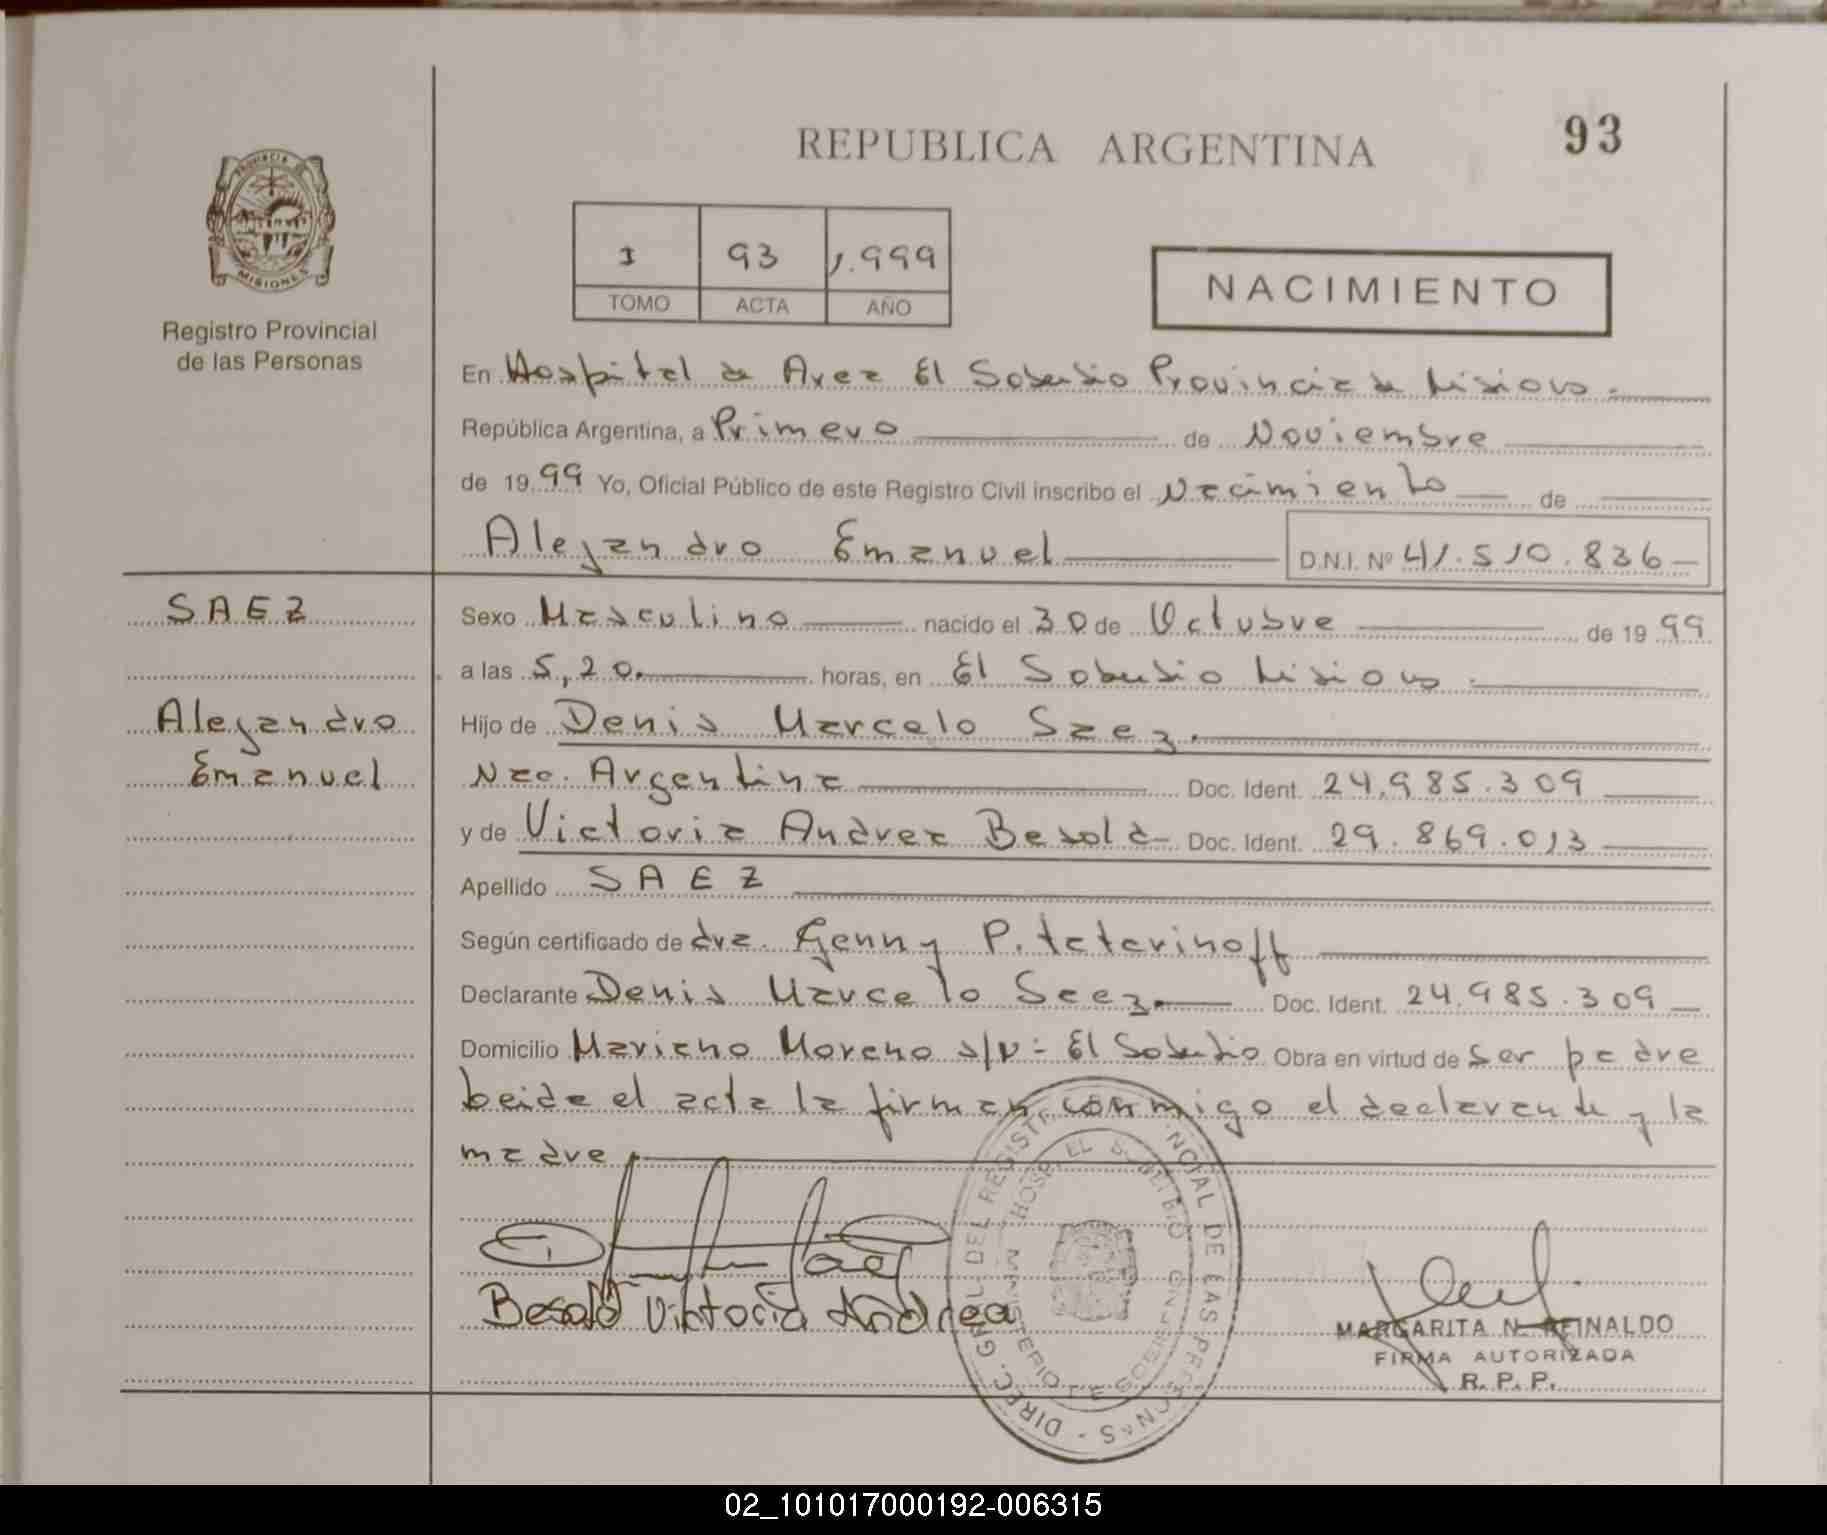 93
REPUBLICA ARGENTINA
PROVINCIA DE
MISIONES
Registro Provincial
de las Personas
I 93 1.999
TOMO ACTA AÑO
NACIMIENTO
En Hospital de Area El Soberbio Provincia de Misiones.
República Argentina, a Primero de Noviembre
de 19 99 Yo, Oficial Público de este Registro Civil inscribo el Nacimiento de
Alejandro Emanuel D.N.I. Nº 41.510.836
SAEZ
Alejandro
Emanuel
Sexo Masculino nacido el 30 de Octubre de 19 99
a las 5,20. horas, en El Soberbio Misiones.
Hijo de Denis Marcelo Saez.
Nac. Argentina Doc. Ident. 24.985.309
y de Victoria Andrea Besold Doc. Ident. 29.869.013
Apellido SAEZ
Según certificado de dra. Genny P. tatarinoff
Declarante Denis Marcelo Saez. Doc. Ident. 24.985.309
Domicilio Mariano Moreno s/n - El Soberbio Obra en virtud de ser padre
leida el acta la firman conmigo el declarante y la
madre
Besold Victoria Andrea
DIREC. GRAL. DEL REGISTRO PROVINCIAL DE LAS PERSONAS
HOSP. EL SOBERBIO
MARGARITA N. REINALDO
FIRMA AUTORIZADA
R. P. P.
02_101017000192-006315